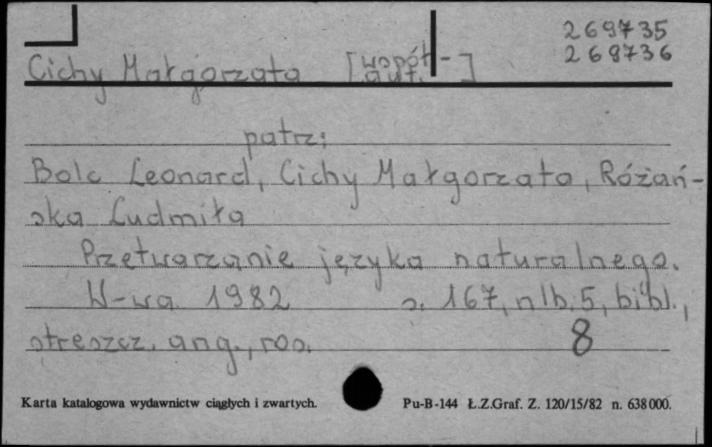 269735
269736
Cichy Małgorzata [współ-
aut.]
patrz:
Bolc Leonard, Cichy Małgorzata, Różań-
ska Ludmiła
Przetwarzanie języka naturalnego.
W-wa 1982 s. 167, nlb. 5, bibl.,
streszcz. ang., ros. 8
Karta katalogowa wydawnictw ciągłych i zwartych. Pu-B-144 Ł.Z.Graf. Z. 120/15/82 n. 638000.